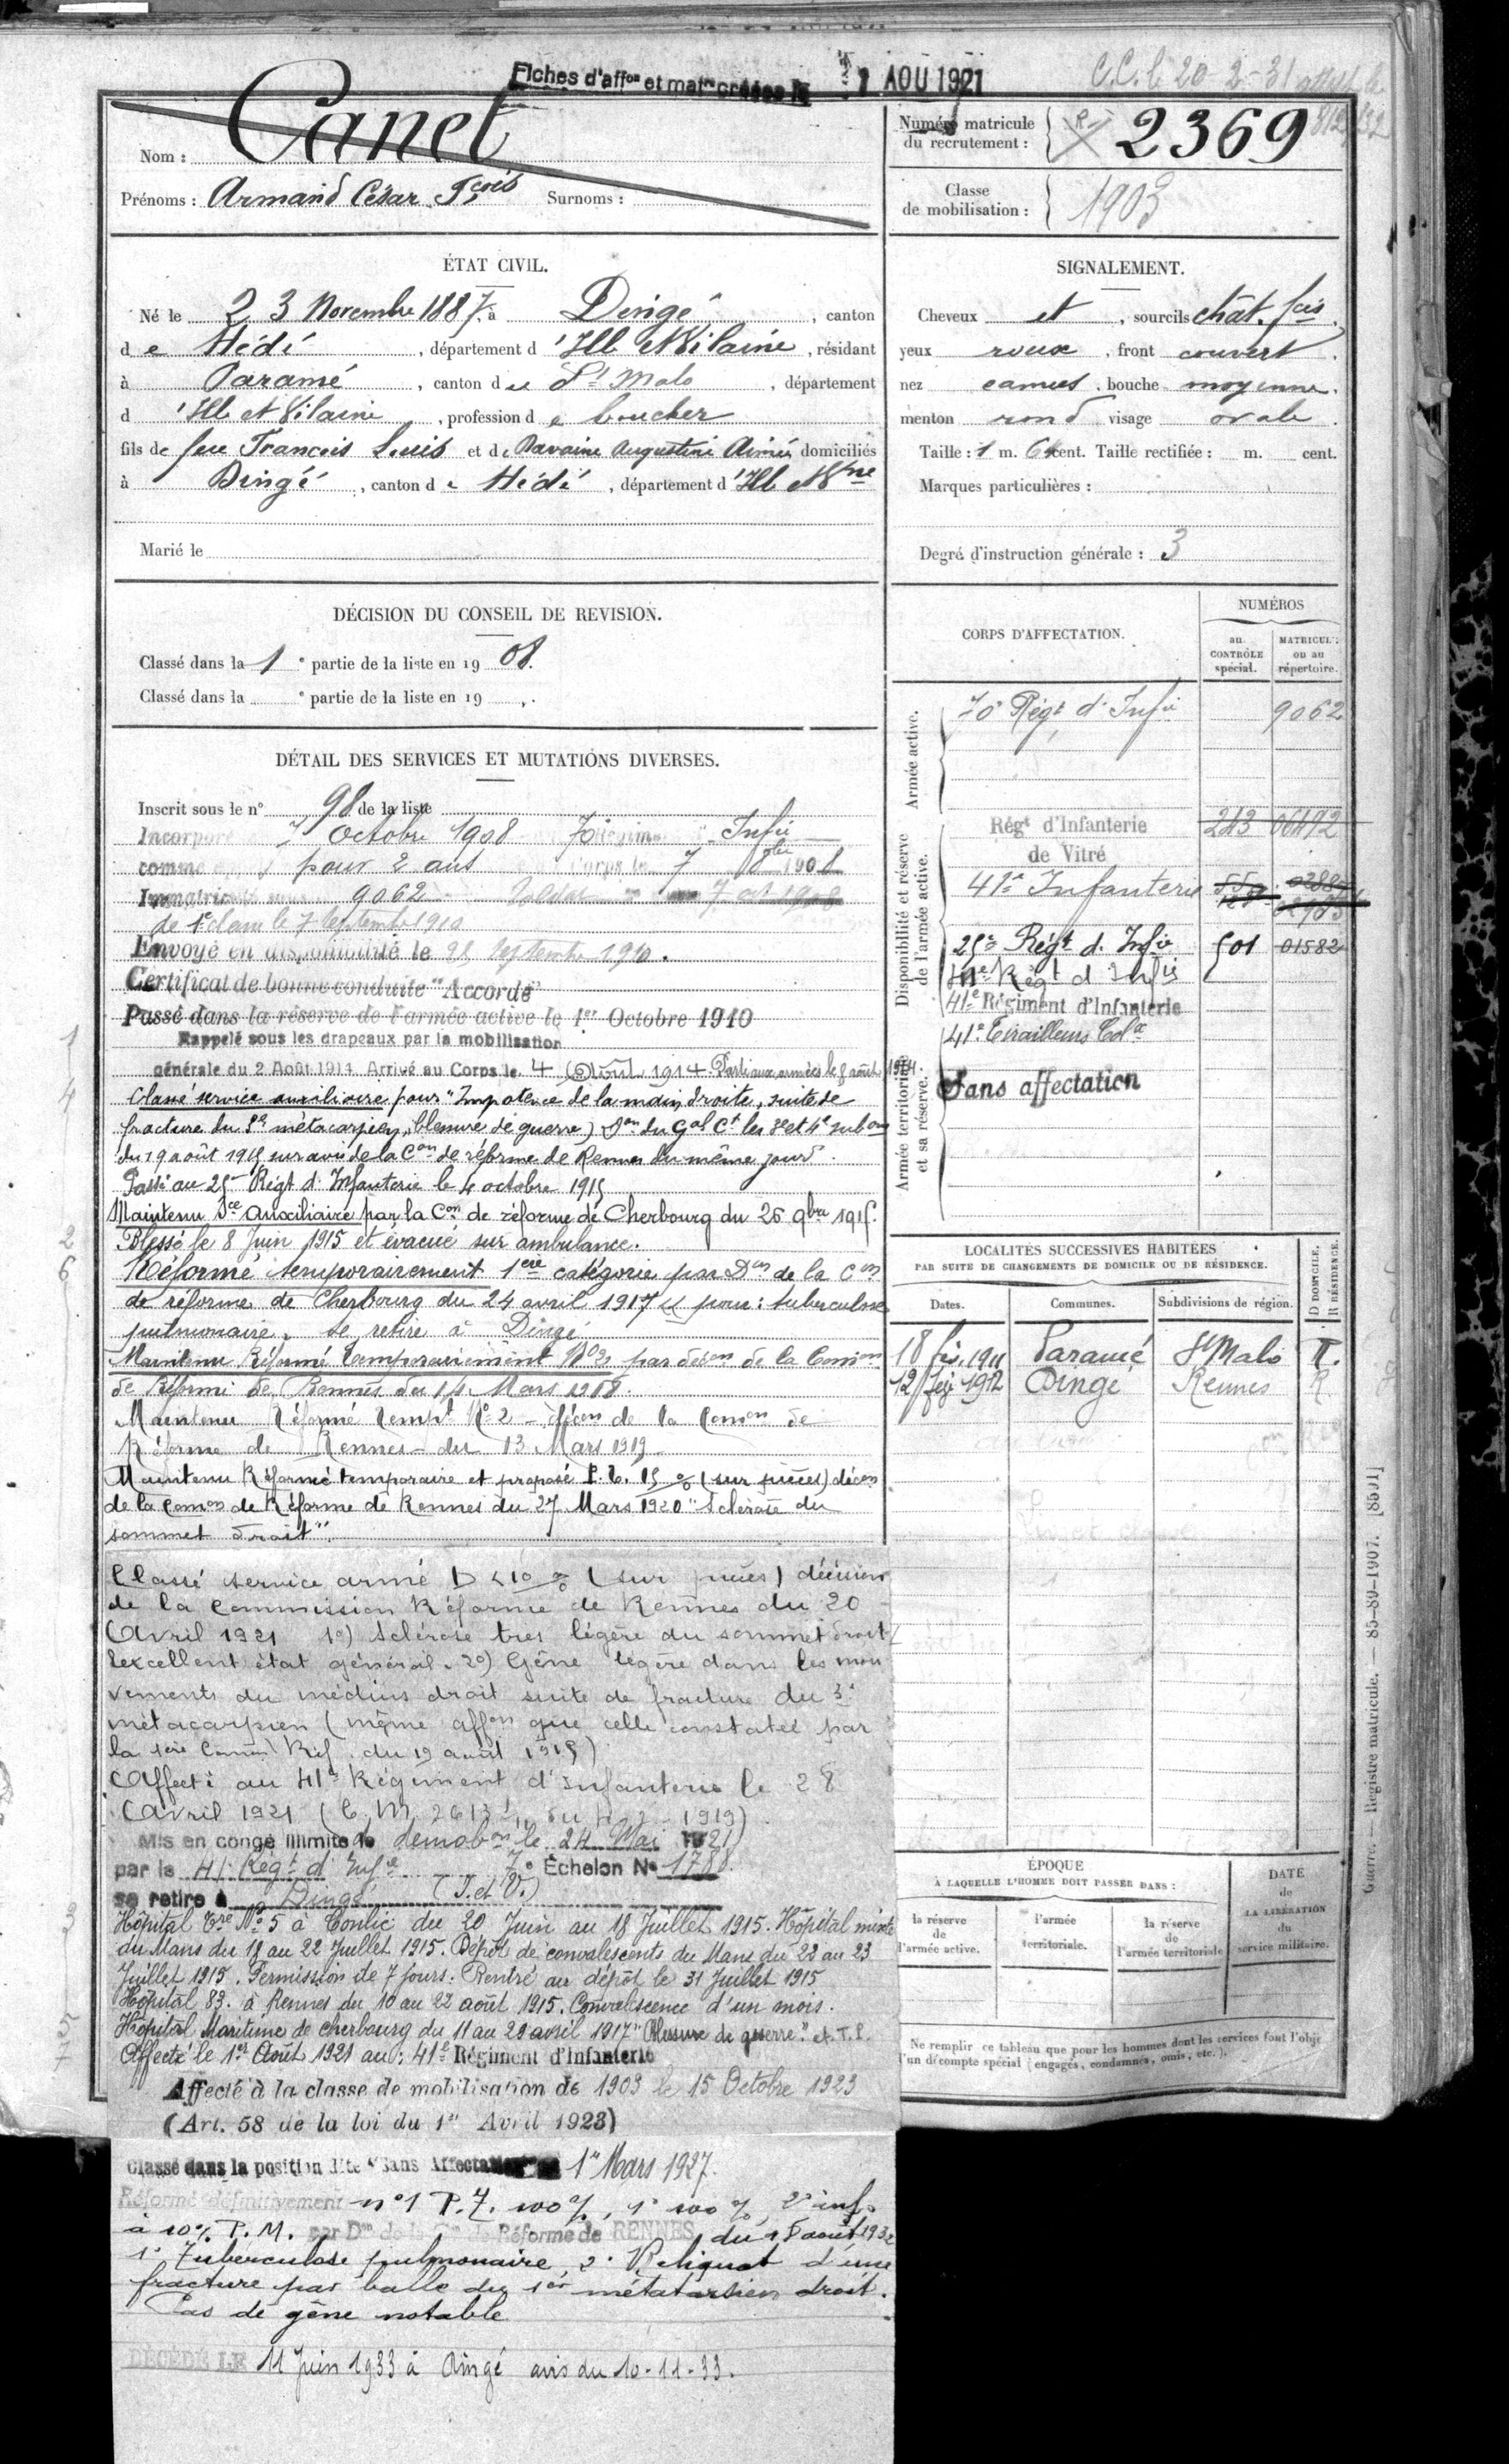 Fiches d'affon et matr créées le 1 AOU 1921
C.C. le 20-2-31
Nom : Canet
Prénoms : Armand César Fçois Surnoms :
Numéro matricule du recrutement : 2369
Classe de mobilisation : 1903
ÉTAT CIVIL.
Né le 23 Novembre 1887, à Dingé, canton
de Hédé, département d'Ille et Vilaine, résidant
à Paramé, canton de St Malo, département
d'Ille et Vilaine, profession de boucher
fils de feu François Louis et de Davoine Augustine Aimée domiciliés
à Dingé, canton de Hédé, département d'Ille et Vne
Marié le
SIGNALEMENT.
Cheveux et, sourcils chât. fcés
yeux roux, front couvert.
nez camus, bouche moyenne.
menton rond visage ovale.
Taille : 1 m. 61 cent. Taille rectifiée : m. cent.
Marques particulières :
Degré d'instruction générale : 3
DÉCISION DU CONSEIL DE REVISION.
Classé dans la 1e partie de la liste en 1908.
Classé dans la e partie de la liste en 19 .
DÉTAIL DES SERVICES ET MUTATIONS DIVERSES.
Inscrit sous le n° 98 de la liste
Incorporé 7 Octobre 1908 70 Régim Infie
comme appelé pour 2 ans Corps le 7 8bre 1908
Immatriculé sous 9062 Soldat 7 oct 1908
de 1e classe le 7 Septembre 1910
Envoyé en disponibilité le 25 Septembre 1910.
Certificat de bonne conduite "Accordé"
Passé dans la réserve de l'armée active le 1er Octobre 1910
Rappelé sous les drapeaux par la mobilisation
générale du 2 Août 1914 Arrivé au Corps le 4 Août 1914 Parti aux armées le 8 août 1914.
Classé service auxiliaire pour "Impotence de la main droite, suite de
fracture du 3e métacarpien, blessure de guerre) Don du Gal Ct les 3e et 4e subons
du 19 août 1915 sur avis de la Con de réforme de Rennes du même jour
Passé au 25me Régt d'Infanterie le 4 octobre 1915
Maintenu Sce Auxiliaire par la Con de réforme de Cherbourg du 26 9bre 1915.
Blessé le 8 Juin 1915 et évacué sur ambulance.
Réformé temporairement 1ère catégorie par Don de la Con
de réforme de Cherbourg du 24 avril 1917 pour : tuberculose
pulmonaire. Se retire à Dingé
Maintenu Réformé temporairement No2 par décon de la Comon
de Réforme de Rennes du Mars 1918.
Maintenu Réformé tempt No 2 - décon de la Comon de
Réforme de Rennes - du 13 Mars 1919
Maintenu Réformé temporaire et proposé P.T. 15 % (sur pièces) décon
de la Comon de Réforme de Rennes du 27 Mars 1920 "Sclérose du
sommet droit".
Classé service armé D < 10 % (sur pièces) décision
de la Commission Réforme de Rennes du 20
Avril 1921 1°) Sclérose très légère du sommet droit
excellent état général. 2°) Gêne légère dans les mou
vements du médius droit suite de fracture du 3e
métacarpien (même affon que celle constatée par
la 1ère Comon Réf. du 19 août 1915)
Affecté au 41e Régiment d'Infanterie le 28
Avril 1921 (C.M. 2613 du 2 - 1919)
Mis en congé illimité de démobon le 24 Mai 1921
par le 41 Régt d'Infie 7e Échelon No 1788.
se retire à Dingé (I. et V.)
Hôpital Cre No 5 à Conlie du 20 Juin au 18 Juillet 1915. Hôpital mixte
du Mans du 18 au 22 Juillet 1915. Dépôt de convalescents du Mans du 22 au 23
Juillet 1915. Permission de 7 jours. Rentré au dépôt le 31 Juillet 1915
Hôpital 83. à Rennes du 10 au 22 août 1915. Convalescence d'un mois.
Hôpital Maritime de Cherbourg du 11 au 29 avril 1917 "Blessure de guerre." et T.P.
Affecté le 1er Août 1921 au : 41e Régiment d'Infanterie
Affecté à la classe de mobilisation de 1903 le 15 Octobre 1923
(Art. 58 de la loi du 1er Avril 1923)
Classé dans la position dite "Sans Affectation" 1er Mars 1927.
Réformé définitivement n°1 P.I. 100 %, 1° 100 %, 2° inf.
à 10 % P.M. par Don de la Con de Réforme de RENNES du 18 août 1932
1° Tuberculose pulmonaire, 2° Reliquat d'une
fracture par balle du 1er métatarsien droit.
Pas de gêne notable
DÉCÉDÉ LE 11 Juin 1933 à Dingé avis du 10-11-33.
CORPS D'AFFECTATION.
NUMÉROS
au CONTRÔLE spécial.
MATRICULE ou au répertoire.
Armée active.
70e Régt d'Infie 9062
Disponibilité et réserve de l'armée active.
Régt d'Infanterie 243 06492
de Vitré
41e Infanterie
25e Régt d. Infie 501 01582
41e Régt d'Infie
41e Régiment d'Infanterie
41e Tirailleurs Colx
Armée territoriale et sa réserve.
Sans affectation
LOCALITÉS SUCCESSIVES HABITÉES
PAR SUITE DE CHANGEMENTS DE DOMICILE OU DE RÉSIDENCE.
Dates. Communes. Subdivisions de région. D DOMICILE. R RÉSIDENCE.
18 fév. 1911 Paramé St Malo R.
12 fév 1912 Dingé Rennes R.
ÉPOQUE
À LAQUELLE L'HOMME DOIT PASSER DANS :
la réserve de l'armée active.
l'armée territoriale.
la réserve de l'armée territoriale
DATE de LA LIBÉRATION du service militaire.
Ne remplir ce tableau que pour les hommes dont les services font l'obje
l'un décompte spécial (engagés, condamnés, omis, etc.).
Guerre. — Registre matricule. — 85-89-1907. [8591]